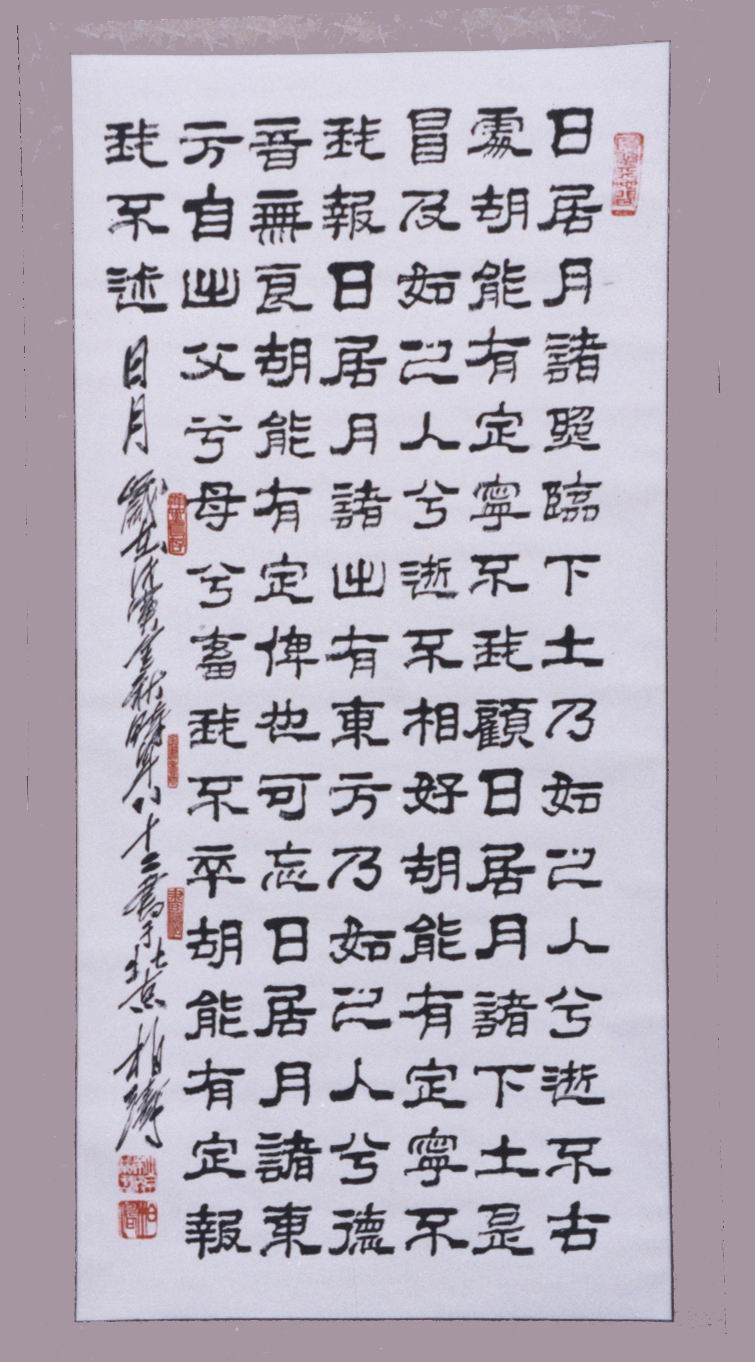 日居月諸照臨下土乃如之人兮逝不古
處胡能有定寧不我顧日居月諸下土是
冒及如之人兮逝不相好胡能有定寧不
我報日居月諸出有東方乃如之人兮德
音無良胡能有定俾也可忘日居月諸東
方自出父兮母兮畜我不卒胡能有定報
我不述 日月 歲在庚寅金秋時年八十二書于北京